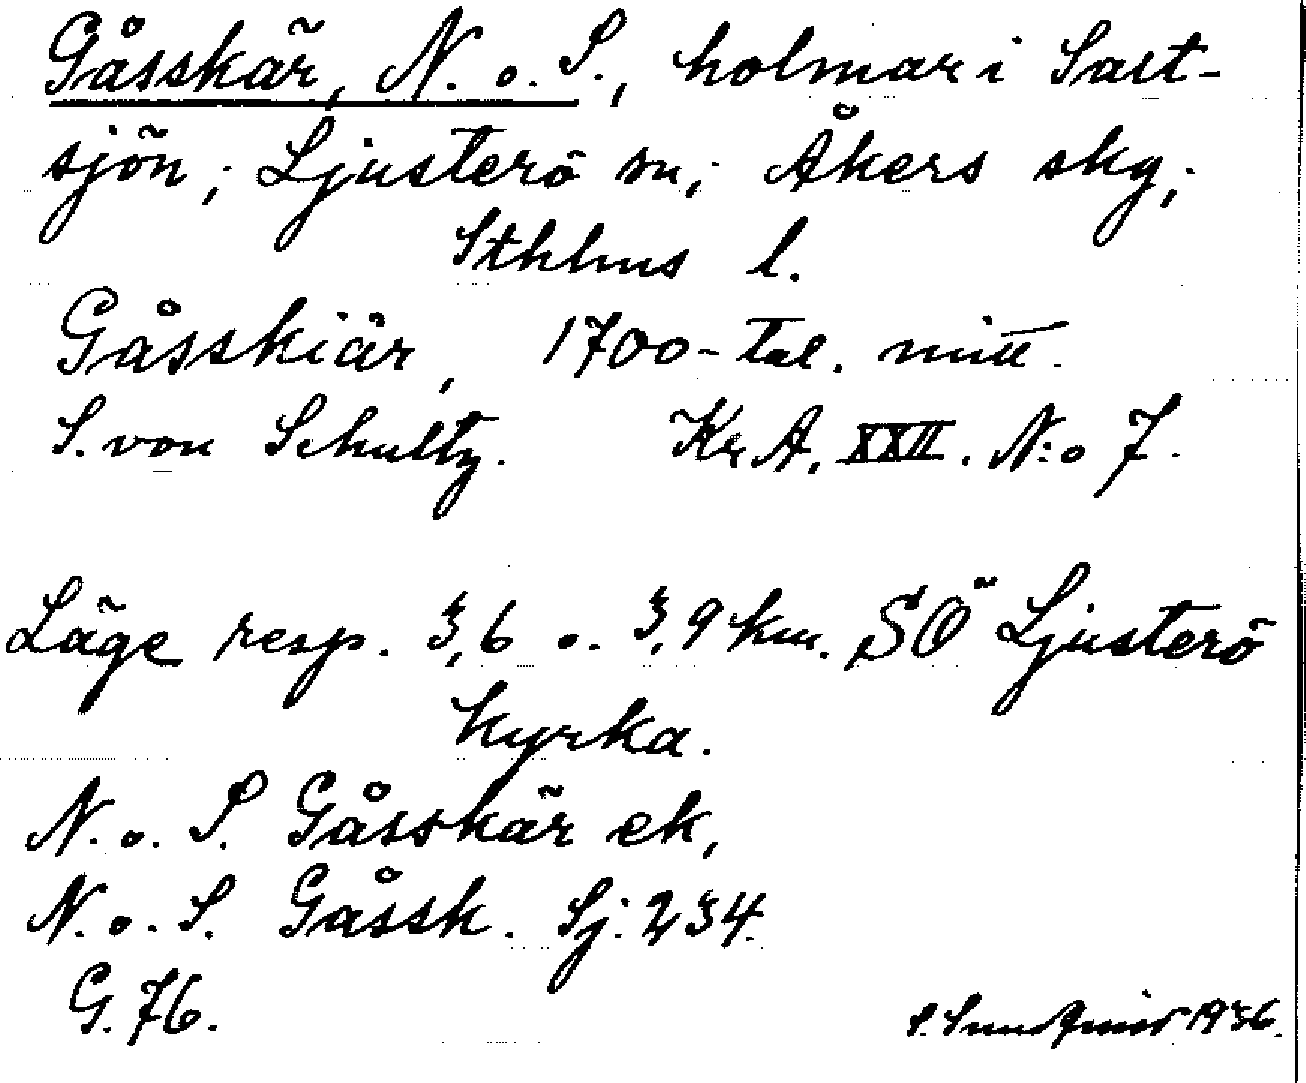 Gåsskär, N. o. S., holmar i Salt-
sjön; Ljusterö sn; Åkers skg;
Sthlms l.
Gåsskiär, 1700-tal. mitt.
S. von Schultz. Kr A. XXII. N:o 7.
Läge resp. 3,6 o. 3,9 km. SÖ Ljusterö
kyrka.
N. o. S. Gåsskär ek,
N. o. S. Gåssk. Sj: 234.
G. 76.
S. 1936.